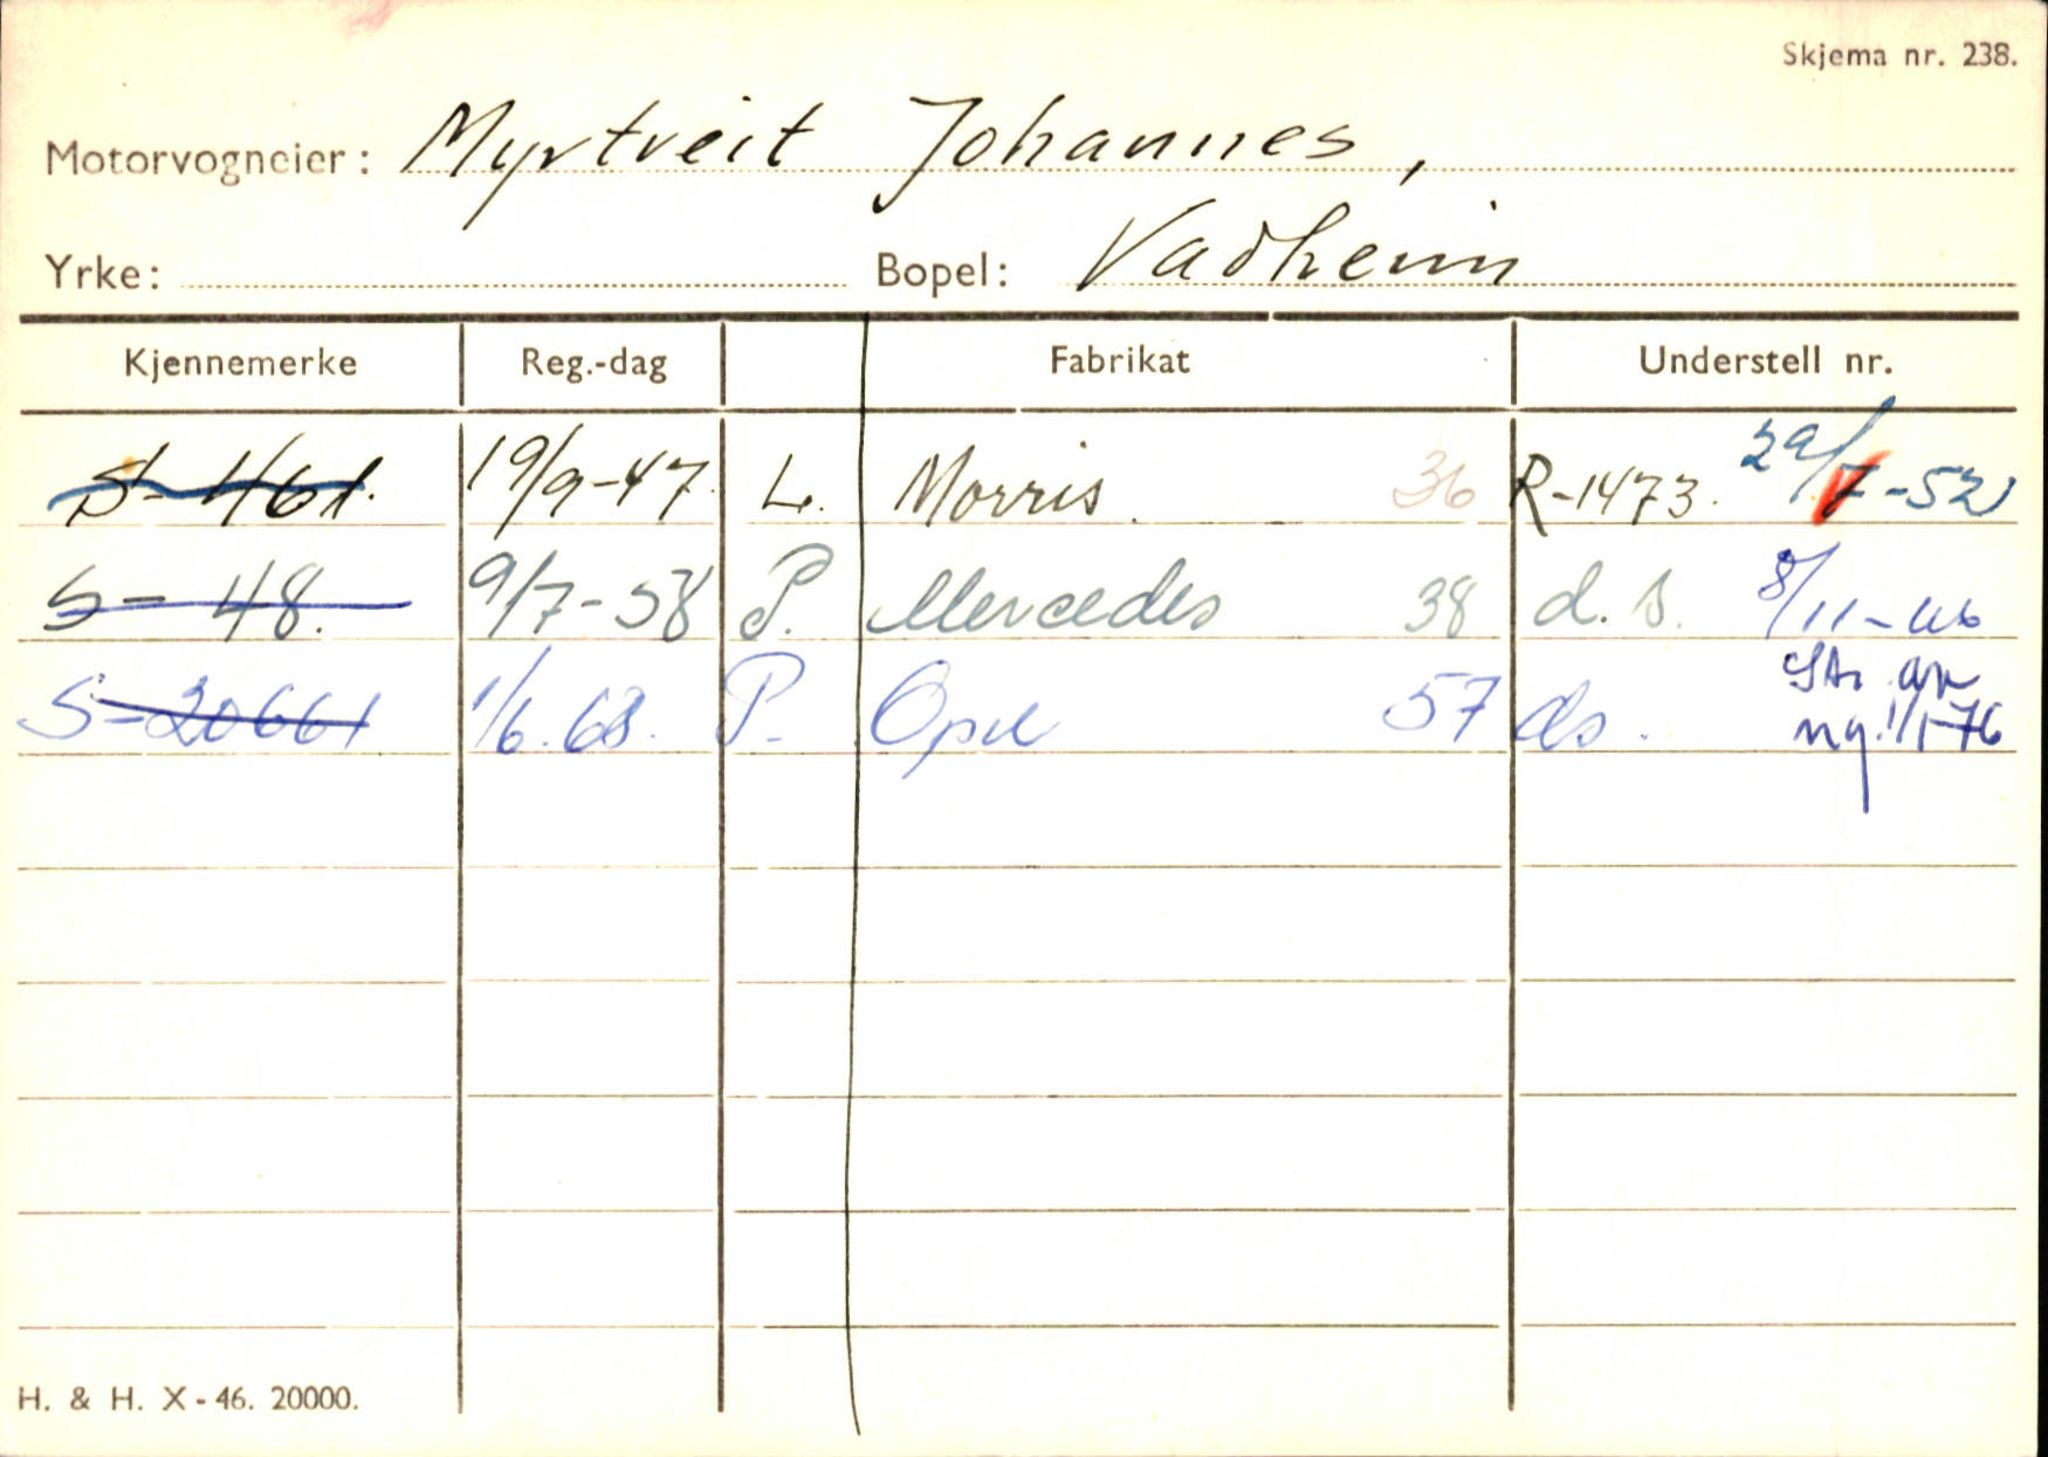 Skjema nr. 238.
Motorvogneier: Myrtveit Johannes,
Yrke: Bopel: Vadheim
Kjennemerke Reg.-dag Fabrikat Understell nr.
S-461. 19/9-47. L. Morris. 36 R-1473. 29/7-52
S-48. 9/7-58 P. Mercedes 38 d.s. 8/11-66
S-20661 1/6.68. P. Opel 57 ds. 1/1-76
H. & H. X-46. 20000.